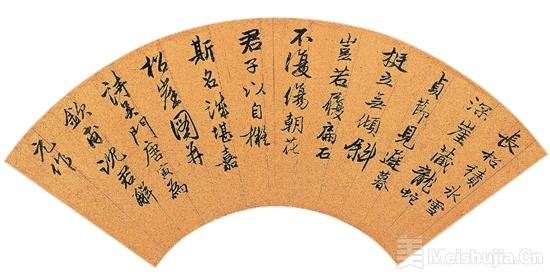 長松積冰雪
深崖藏龍蛇
貞節見遲暮
挺立無傾斜
豈若履扁石
不復傷朝花
君子以自擬
斯名誠堪嘉
松崖圖并
詩吳門唐寅為
欽甫沈君解
元作
美 Meishujia.Cn